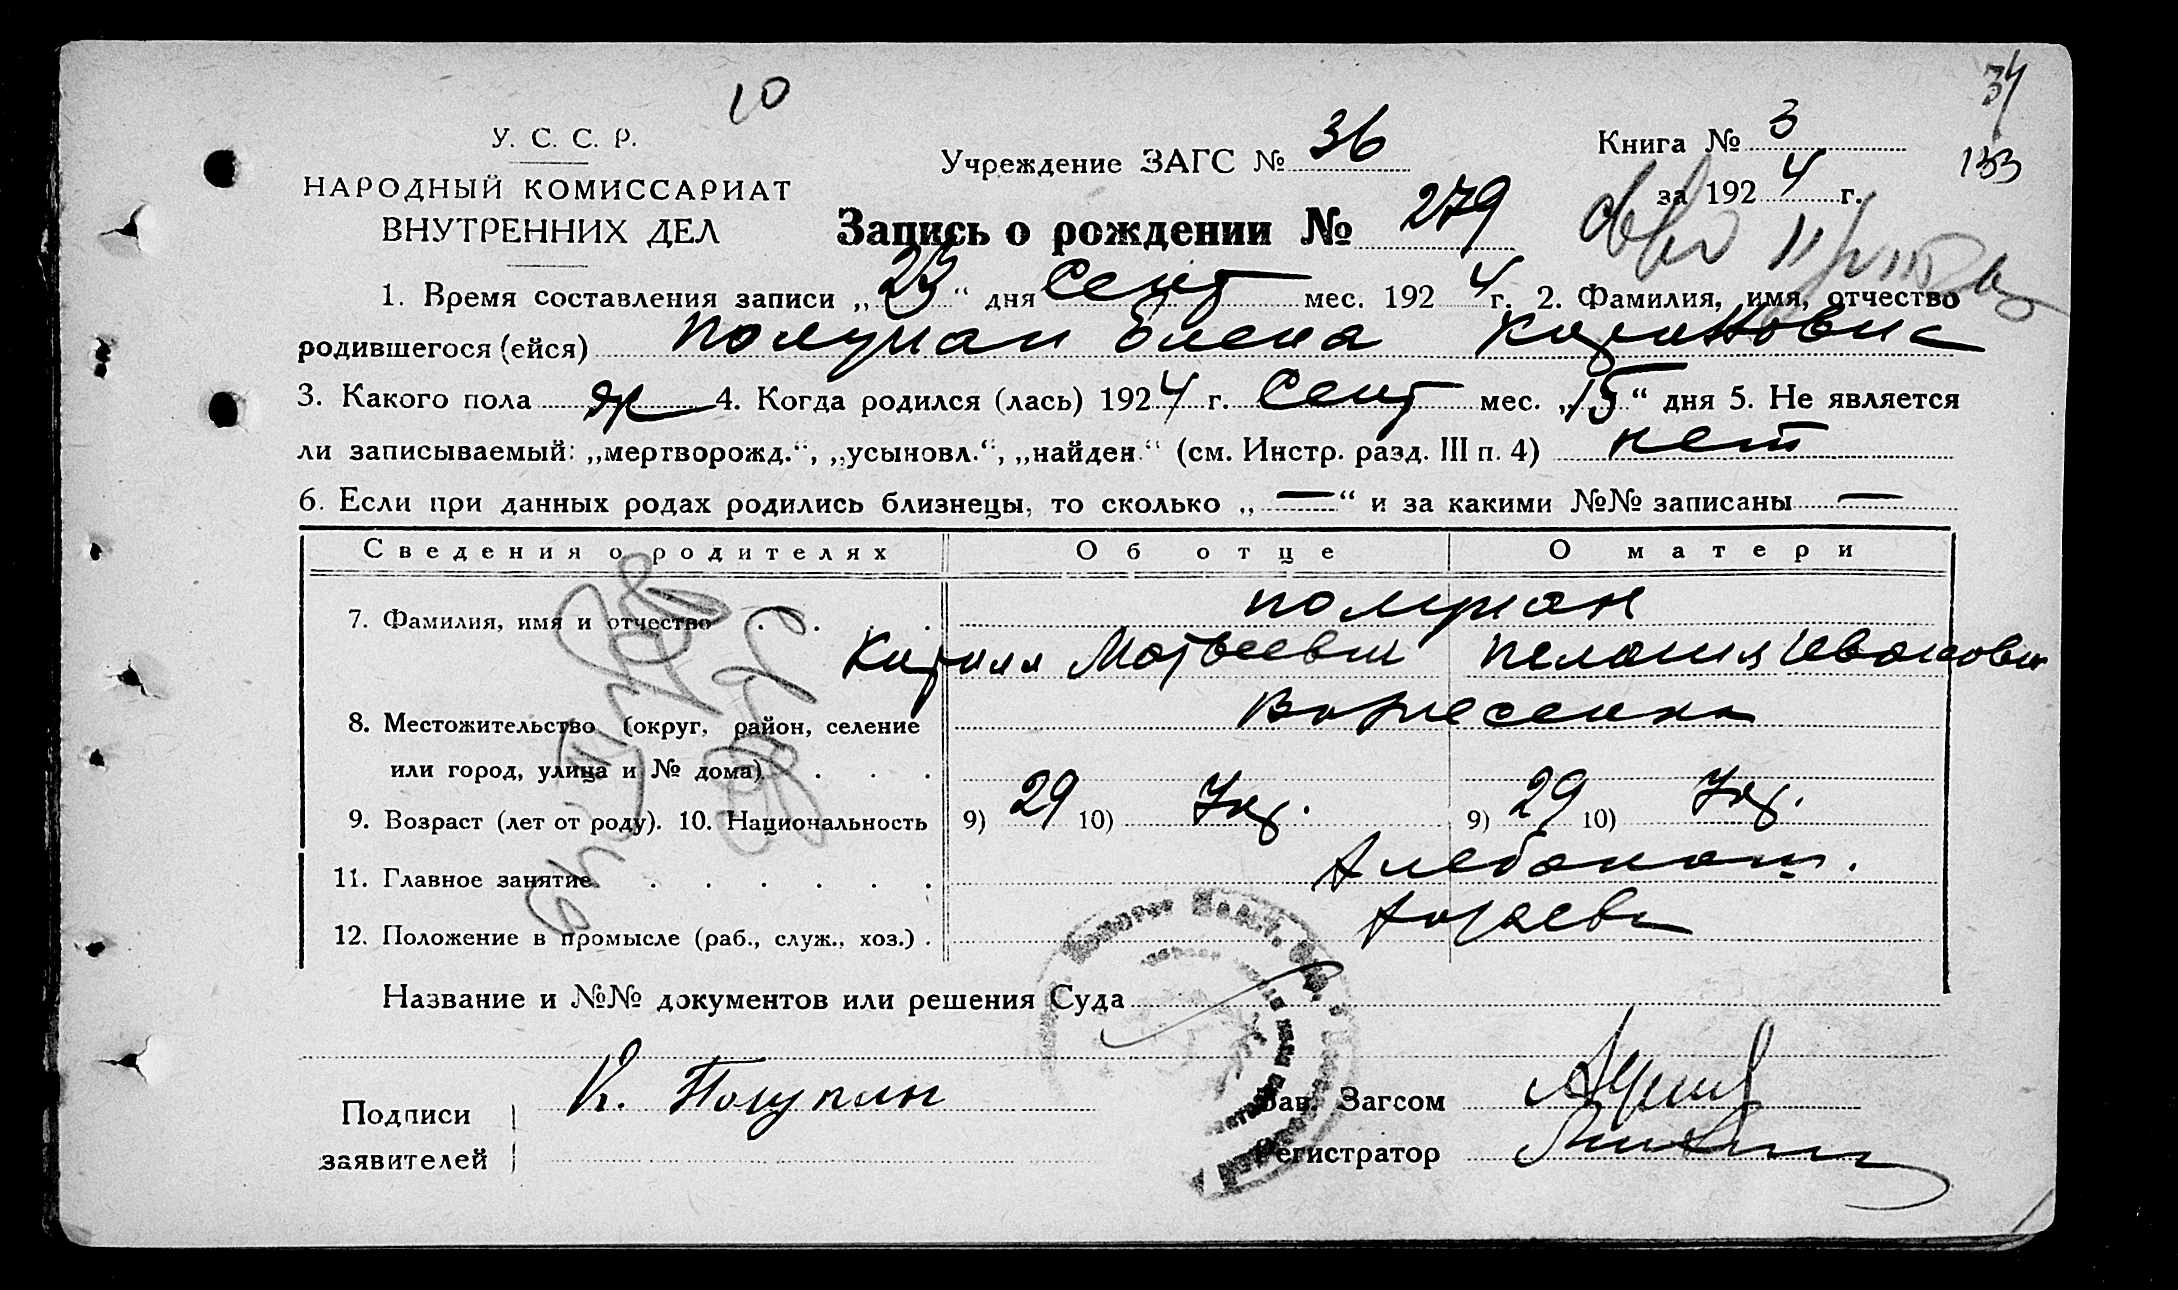 10
34
133
У. С. С. Р.
НАРОДНЫЙ КОМИССАРИАТ
ВНУТРЕННИХ ДЕЛ
Учреждение ЗАГС № 36
Книга № 3
за 1924 г.
Запись о рождении № 279
1. Время составления записи „23“ дня Сент мес. 1924 г. 2. Фамилия, имя, отчество
родившегося (ейся) Полупан Елена
3. Какого пола ж 4. Когда родился (лась) 1924 г. Сент мес. „15“ дня 5. Не является
ли записываемый: „мертворожд.“, „усыновл.“, „найден.“ (см. Инстр. разд. III п. 4) нет
6. Если при данных родах родились близнецы, то сколько „—“ и за какими №№ записаны —
Сведения о родителях Об отце О матери
7. Фамилия, имя и отчество . . . . Полупан
Кирилл Матвеевич Пелагия Ивановн
8. Местожительство (округ, район, селение Вознесенка
или город, улица и № дома) . . .
9. Возраст (лет от роду). 10. Национальность 9) 29 10) Укр. 9) 29 10) Укр.
11. Главное занятие . . . . . . Хлебопаш.
12. Положение в промысле (раб., служ., хоз.) . хозяева
Название и №№ документов или решения Суда
Подписи К. Полупан
заявителей
Зав. Загсом
Регистратор